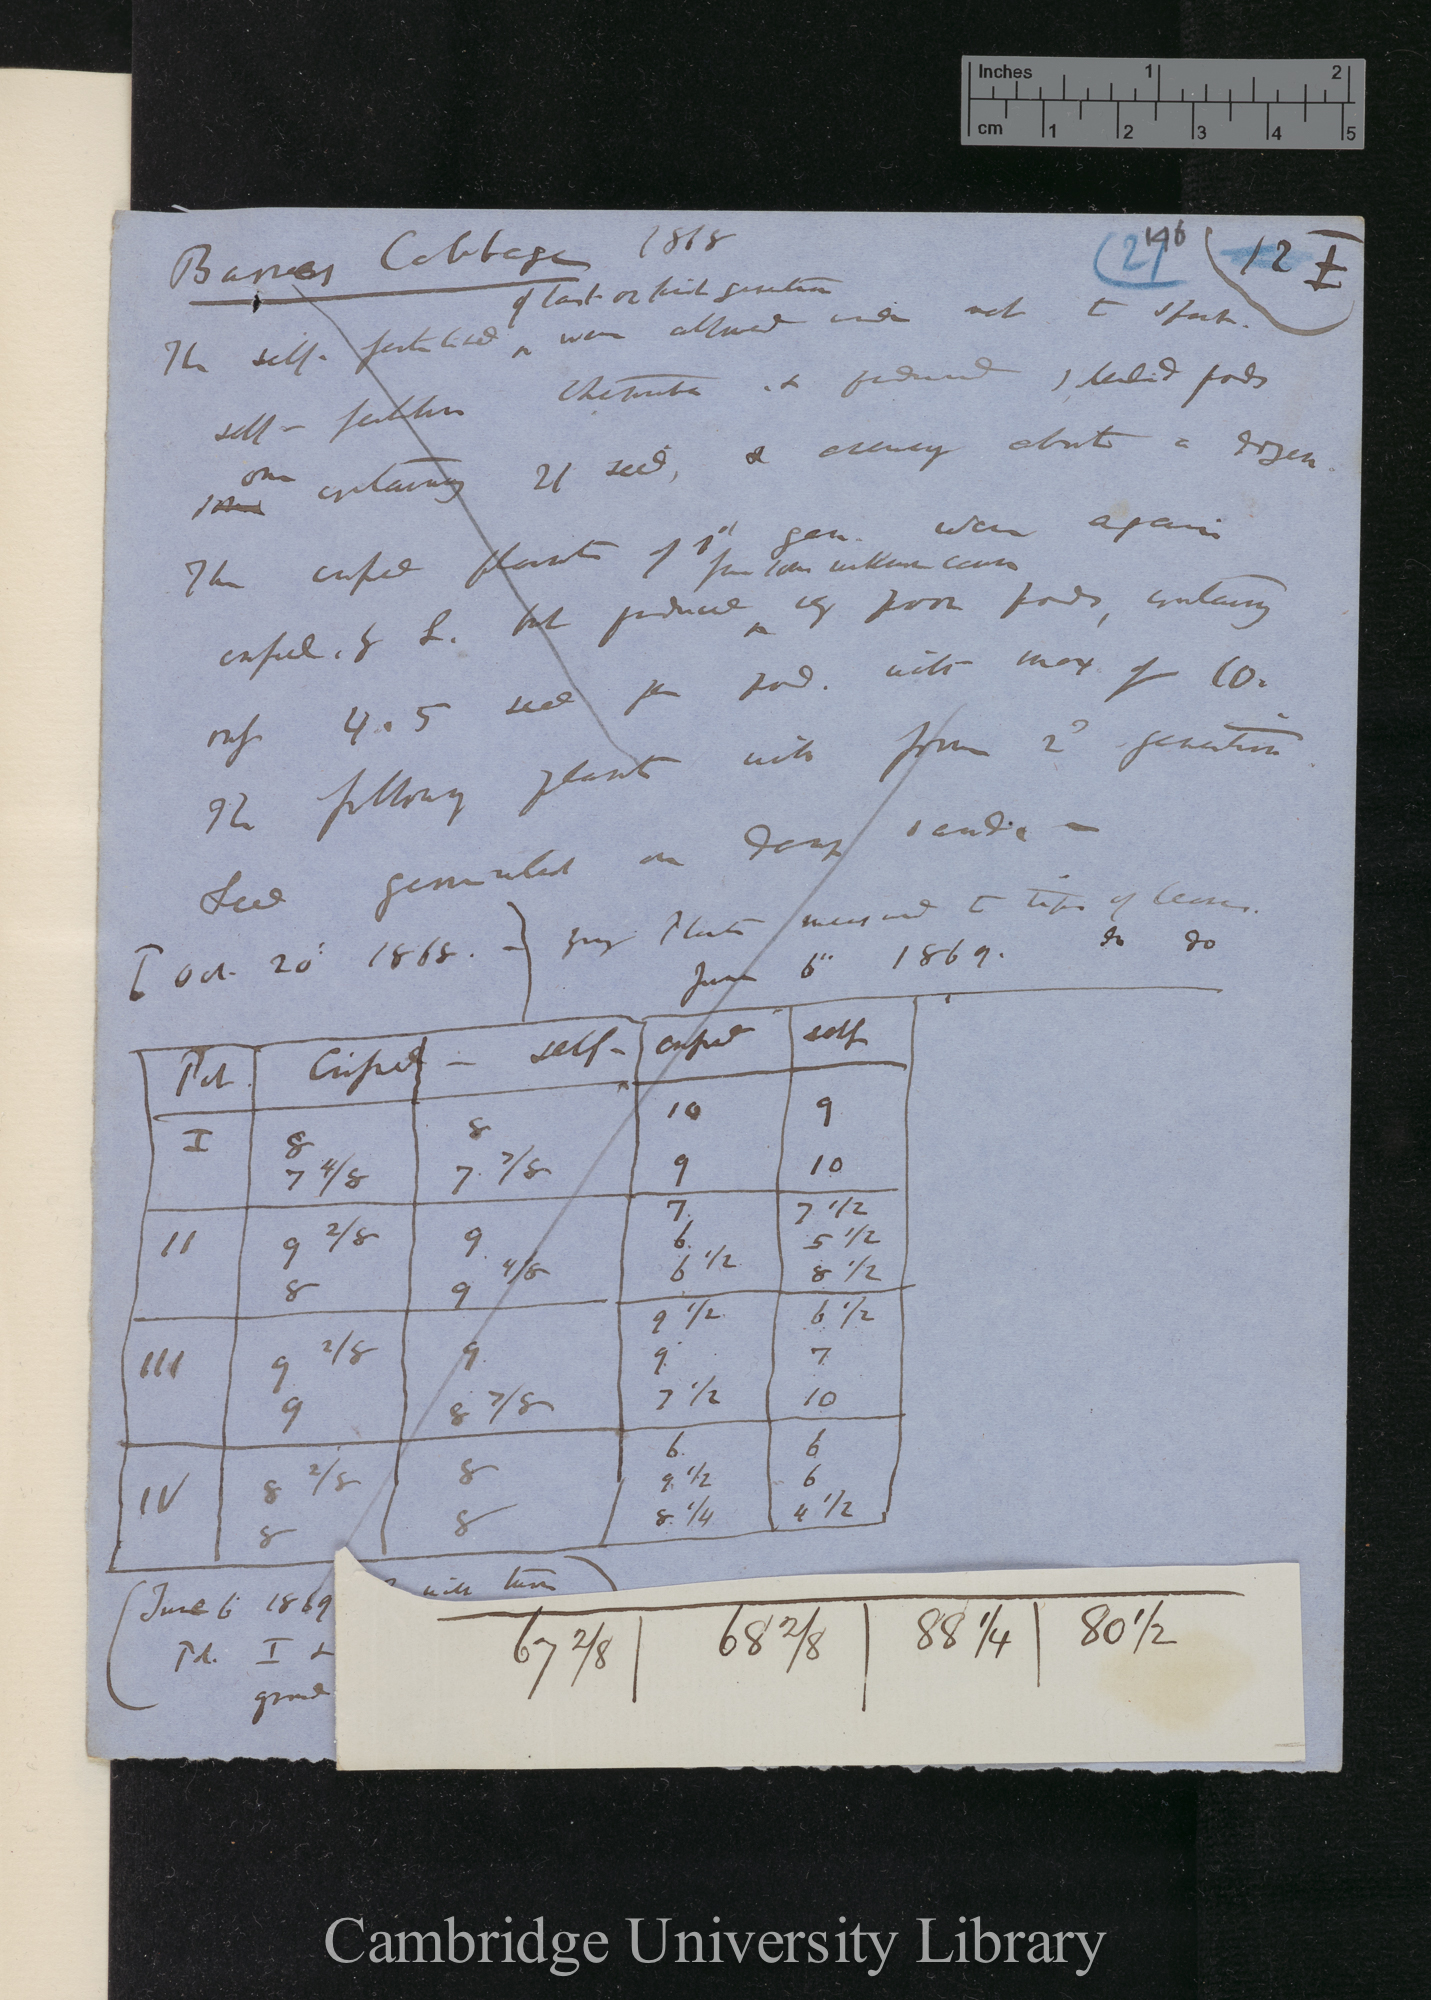 Inches 1 2
cm 1 2 3 4 5
Barnes Cabbage 1868
(21 146 12 I
of last or first generation
The self-fertilised were allowed under net to
self-fertilise & produced pods
one containing 21 seed, & average about a dozen.
The crossed plants of 1st gen. were again
from some unknown cause
crossed. & S. but produced very poor pods, containing
only 4 . 5 seed per pod. with max. of 10.
The following plants will from 2d generation
Seed germinated on damp sand. —
Oct. 20th 1868. — young Plants measured to tips of leaves.
June 6th 1869. do do
Pot Crossed — self- crossed self
I 8 8 10 9
7 4/8 7 7/8 9 10
II 9 2/8 9 7 7 1/2
8 9 4/8 6 5 1/2
6 1/2 8 1/2
III 9 2/8 9 9 1/2 6 1/2
9 8 7/8 9 7
7 1/2 10
IV 8 2/8 8 6 6
8 8 9 1/2 6
8 1/4 4 1/2
(June 6 1869 will turn)
Pot. I &
ground
67 2/8 | 68 2/8 | 88 1/4 | 80 1/2
Cambridge University Library